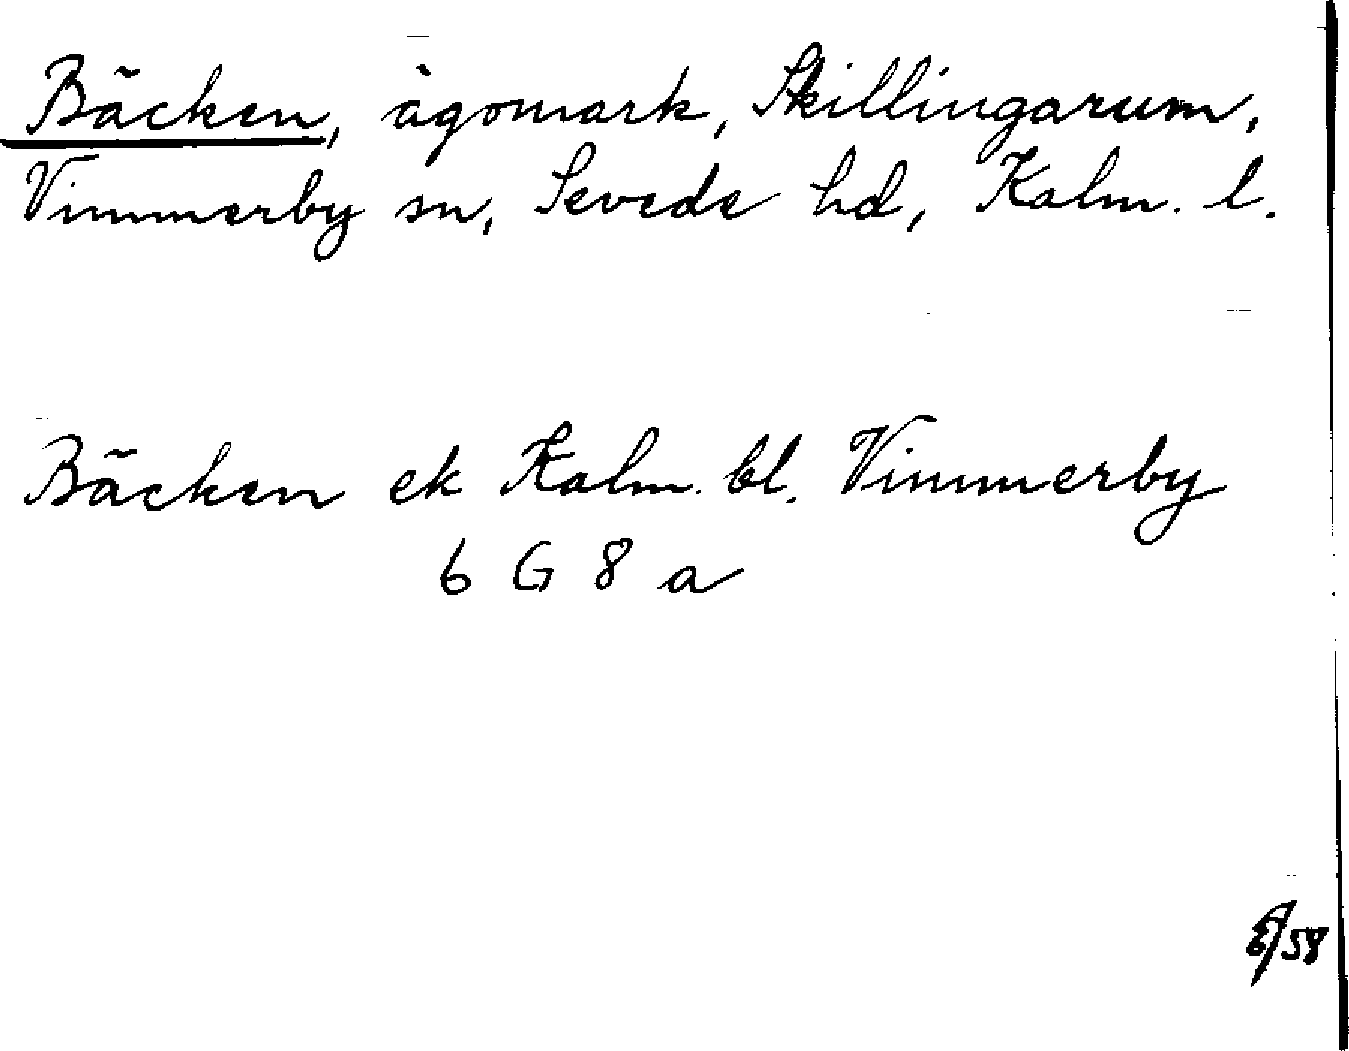 Bäcken, ägomark, Skillingarum,
Vimmerby sn, Sevede hd, Kalm. l.
Bäcken ek Kalm. bl. Vimmerby
6 G 8 a